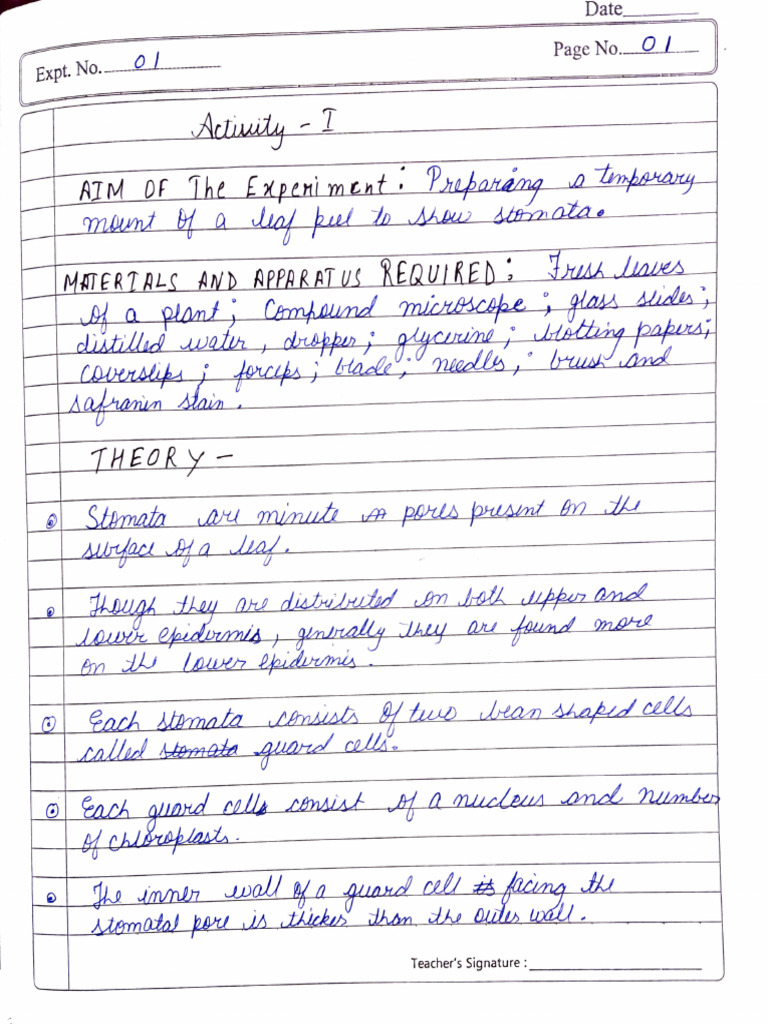 Date
Expt. No. 01
Page No. 01
Activity - I
AIM OF The Experiment : Preparing a temporary
mount of a leaf peel to show stomata.
MATERIALS AND APPARATUS REQUIRED : Fresh leaves
of a plant ; Compound microscope ; glass slides ;
distilled water , dropper ; glycerine ; blotting papers ;
coverslips ; forceps ; blade ; needles ; brush and
safranin stain .
THEORY -
Stomata are minute pores present on the
surface of a leaf .
Though they are distributed on both upper and
lower epidermis , generally they are found more
on the lower epidermis .
Each stomata consists of two bean shaped cells
called stomata guard cells .
Each guard cells consist of a nucleus and number
of chloroplasts .
The inner wall of a guard cell is facing the
stomatal pore is thicker than the outer wall .
Teacher's Signature :